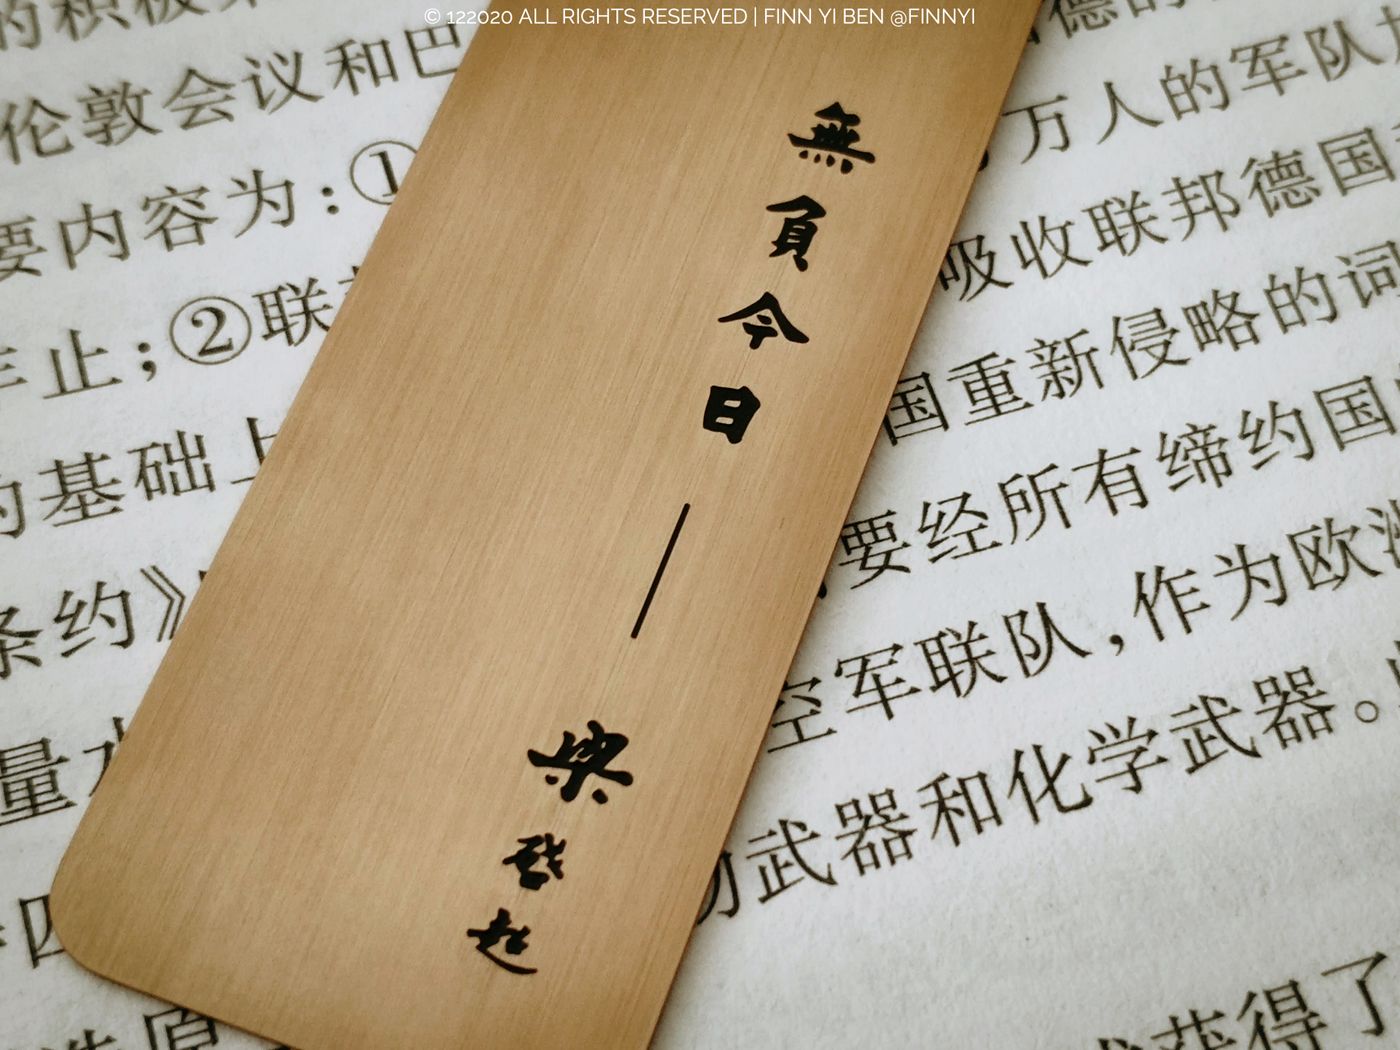 © 122020 ALL RIGHTS RESERVED | FINN YI BEN @FINNYI
無負今日
——
梁啓超
的积极
伦敦会议和巴
要内容为:① 德的
年止;②联 万人的军队
的基础上 吸收联邦德国
条约》 国重新侵略的词
量 要经所有缔约国
四 空军联队,作为欧洲
选原 武器和化学武器。
获得了